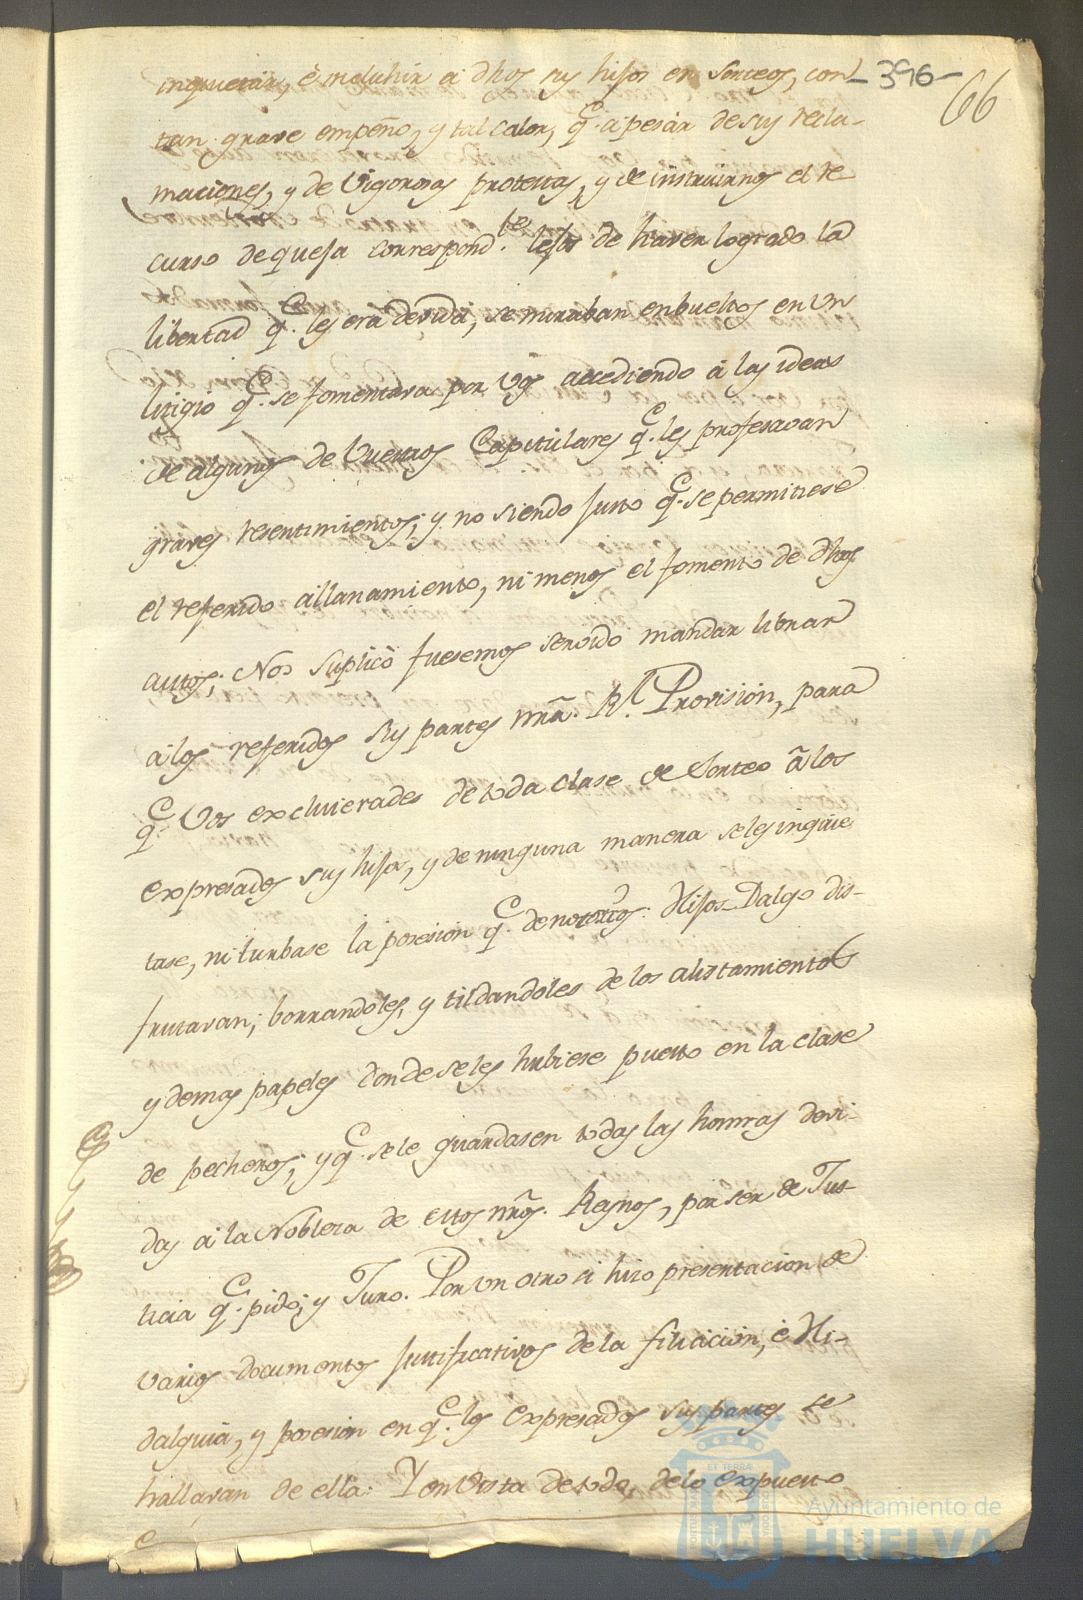 -396- 66
inquietar, è incluhir à dhos sus hijos en sorteos, con
tan grave empeño, y tal calor, q.e apesar de sus recla-
maciones, y de vigorosas protestas, y de instruirnos el re
curso de quexa correspond.te lejos de haver logrado la
libertad q.e les era devida, se miraban enbueltos en un
litigio q.e se fomentava por vos accediendo à las ideas
de algunos de vuestros Capitulares q.e les profesavan
graves resentimientos; y no siendo justo q.e se permitiese
el referido allanamiento, ni menos el fomento de dhos
autos; Nos suplicò fuesemos servido mandar librar
à los referidos sus partes nrã. Rl. Provision, para
q.e Vos excluierades de toda clase de Sorteo à los
expresados sus hijos, y de ninguna manera seles inquie
tase, ni turbase la posesion q.e de notorios Hijos-Dalgo dis-
frutavan; borrandoles, y tildandoles de los alistamientos
y demas papeles donde seles hubiese puesto en la clase
de pecheros; y q.e sele guardasen todas las honrras devi-
das à la Nobleza de estos nrõs. Reynos, por ser de Jus-
ticia q.e pido; y Juro. Por un otro si hizo presentacion de
varios documentos justificativos de la filiacion, è Hi-
dalguia, y posesion en q.e los expresados sus partes se
hallavan de ella: Y en vista de todo, delo expuesto
Ayuntamiento de
HUELVA